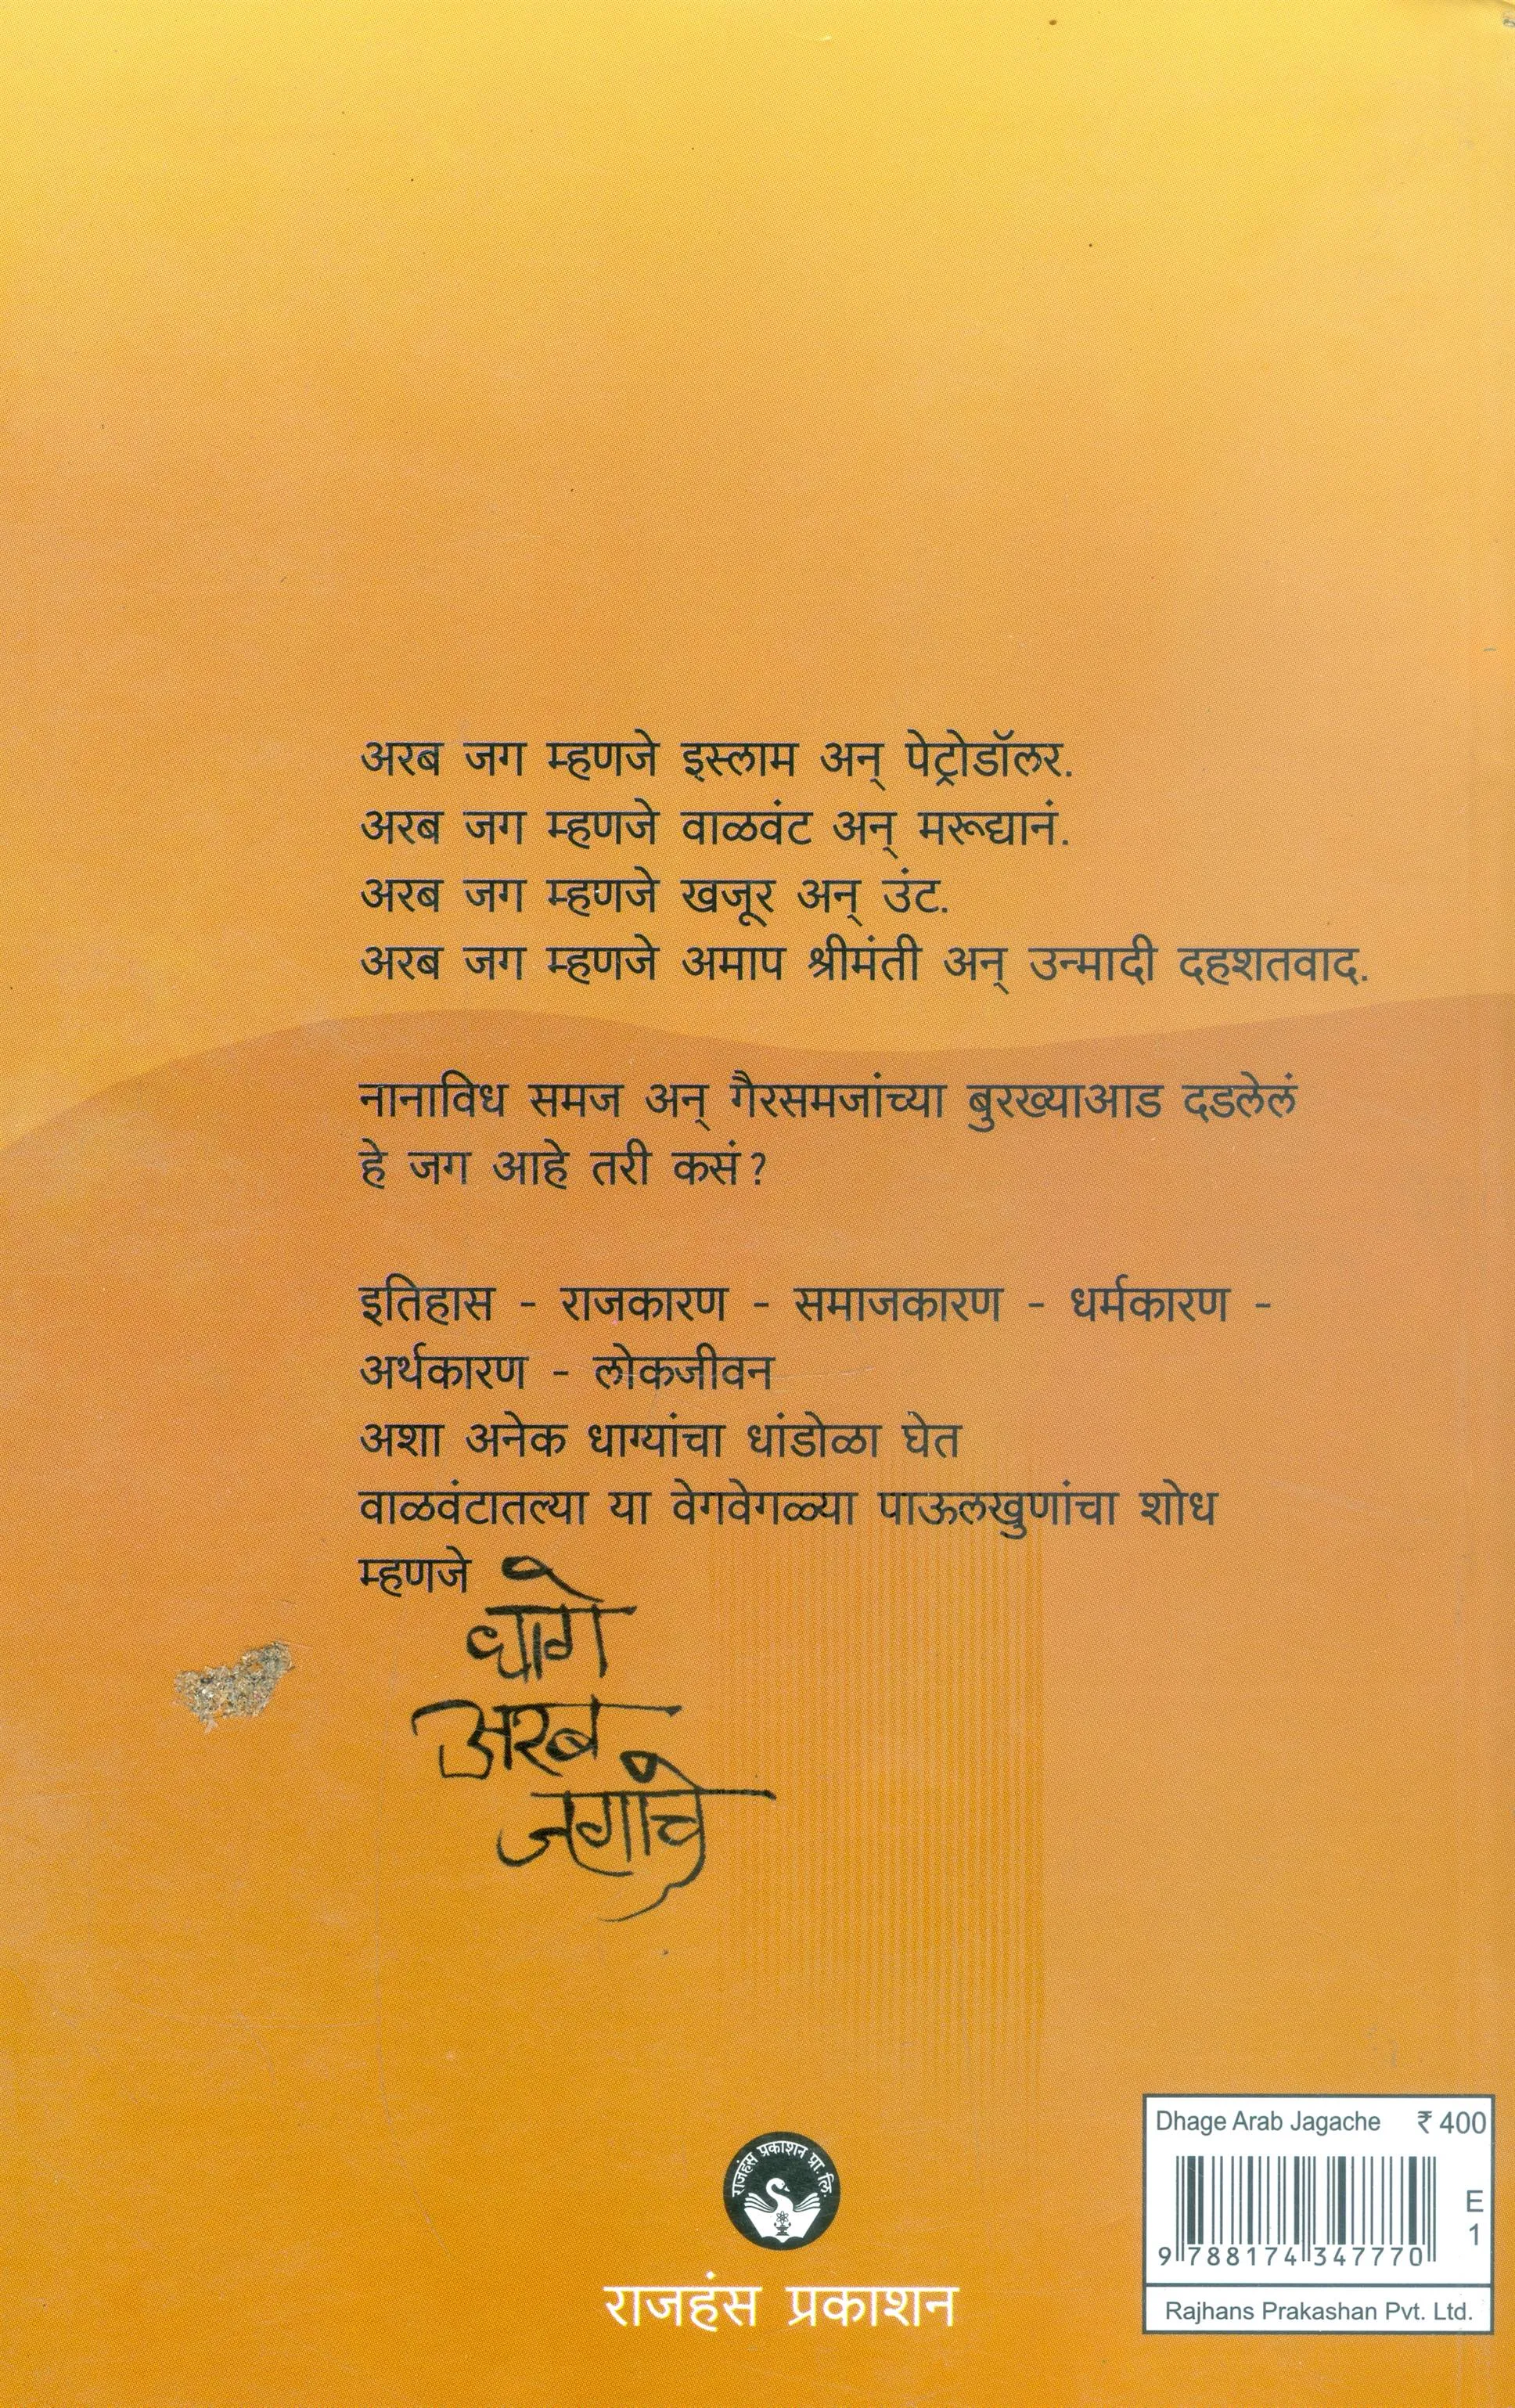 अरब जग म्हणजे इस्लाम अन् पेट्रोडॉलर.
अरब जग म्हणजे वाळवंट अन् मरूद्यानं.
अरब जग म्हणजे खजूर अन् उंट.
अरब जग म्हणजे अमाप श्रीमंती अन् उन्मादी दहशतवाद.
नानाविध समज अन् गैरसमजांच्या बुरख्याआड दडलेलं
हे जग आहे तरी कसं?
इतिहास - राजकारण - समाजकारण - धर्मकारण -
अर्थकारण - लोकजीवन
अशा अनेक धाग्यांचा धांडोळा घेत
वाळवंटातल्या या वेगवेगळ्या पाऊलखुणांचा शोध
म्हणजे
धागे
अरब
जगाचे
राजहंस प्रकाशन प्रा. लि.
राजहंस प्रकाशन
Dhage Arab Jagache ₹ 400
E
1
9 788174 347770
Rajhans Prakashan Pvt. Ltd.